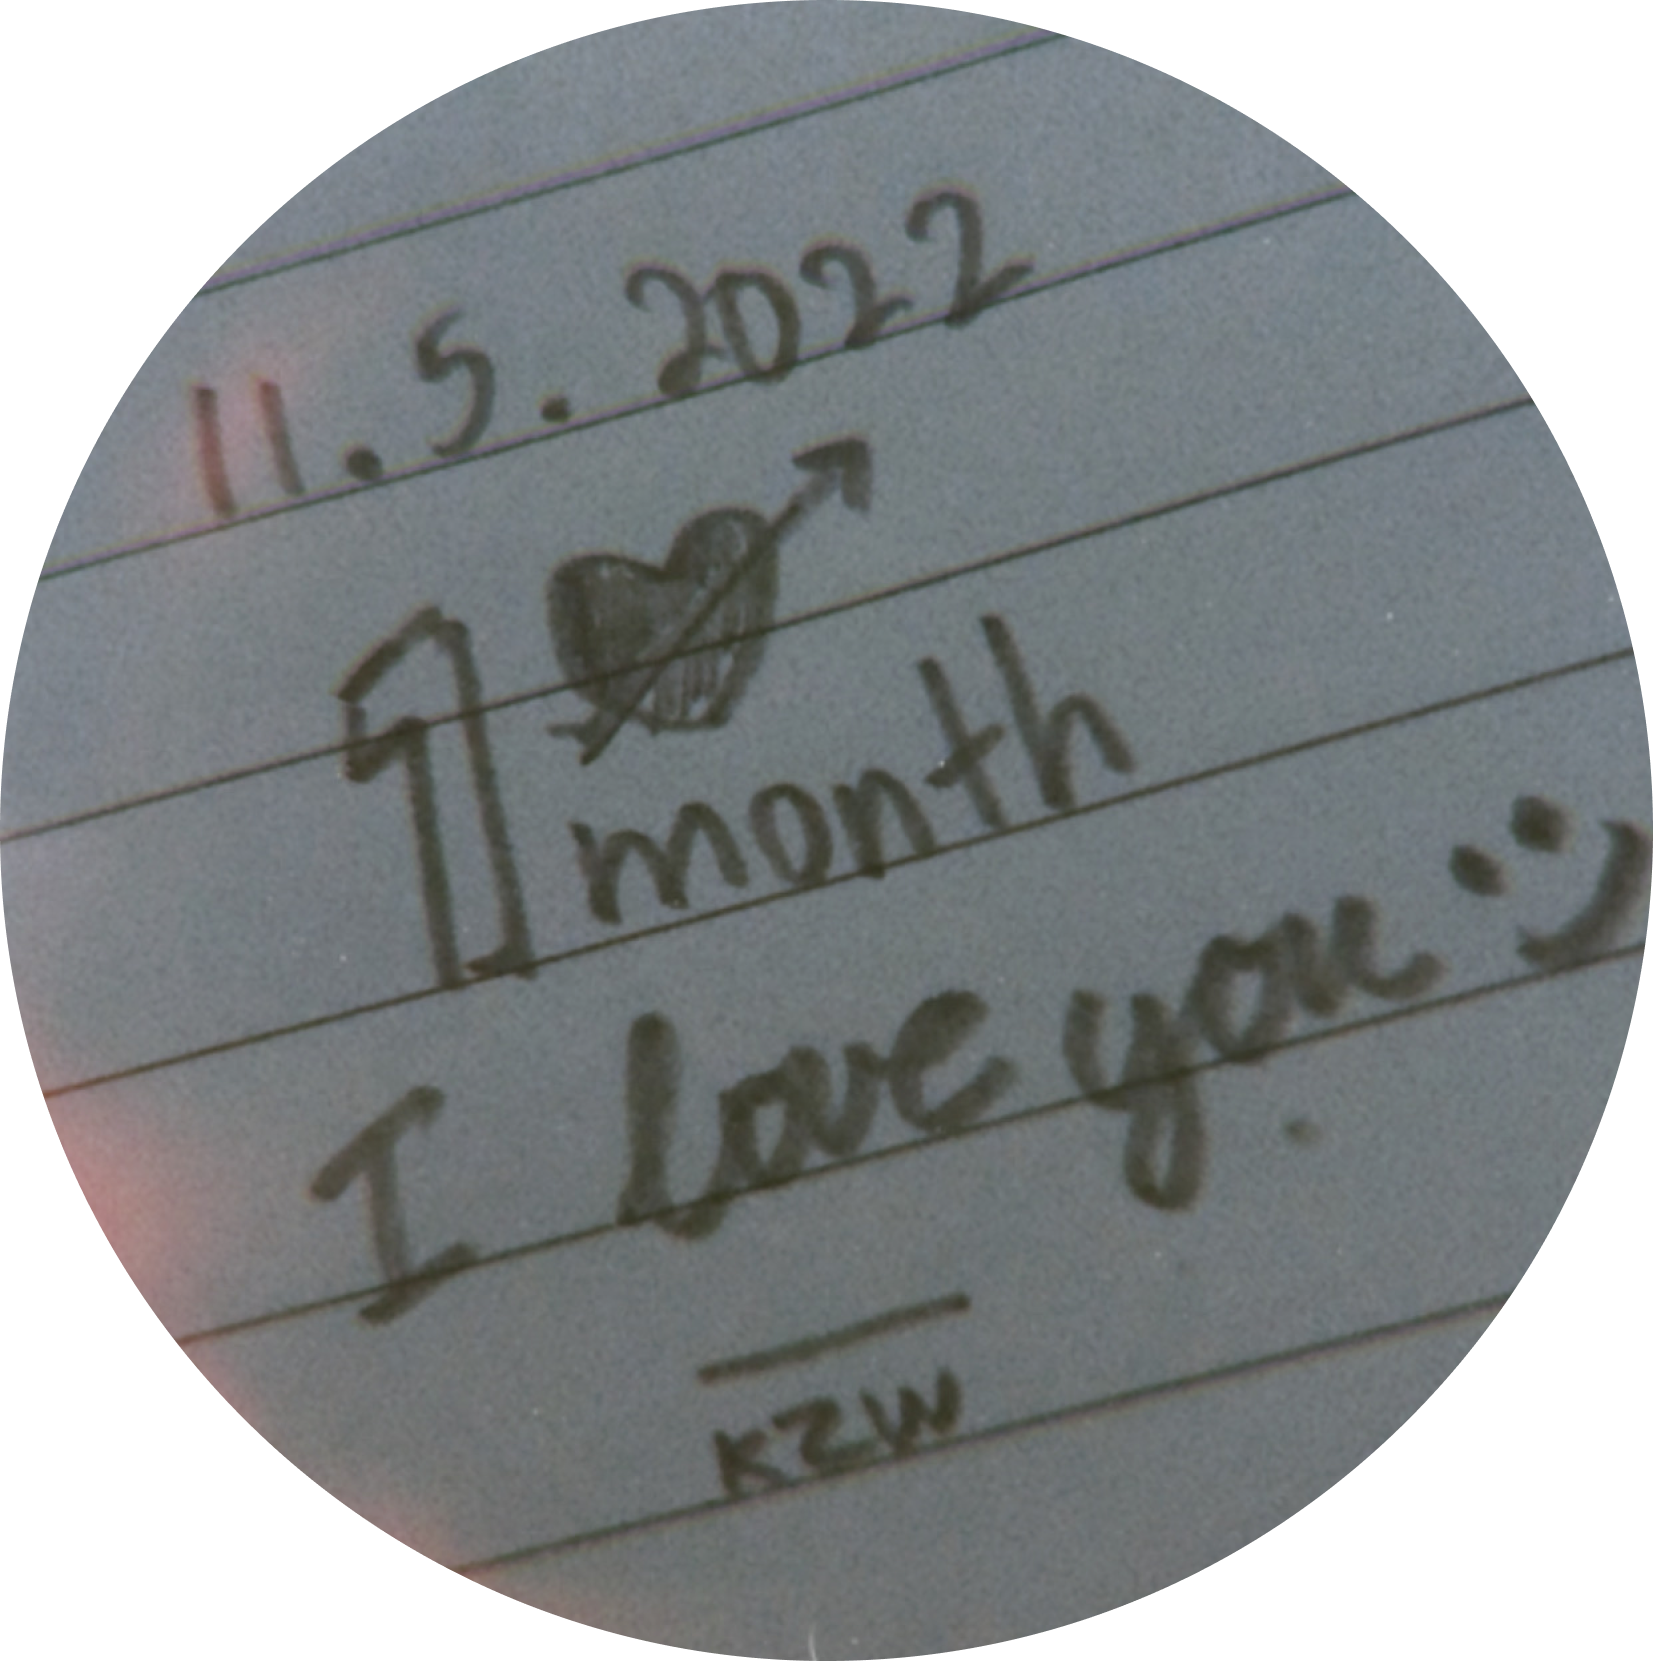 11.5.2022
1 month
I love you :)
KZW